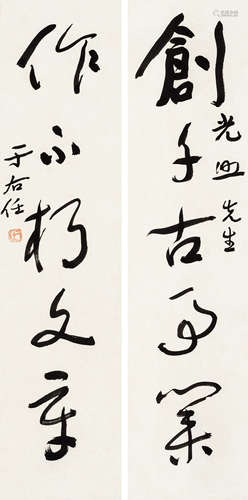 創千古事業
光熙先生
作不朽文章
于右任